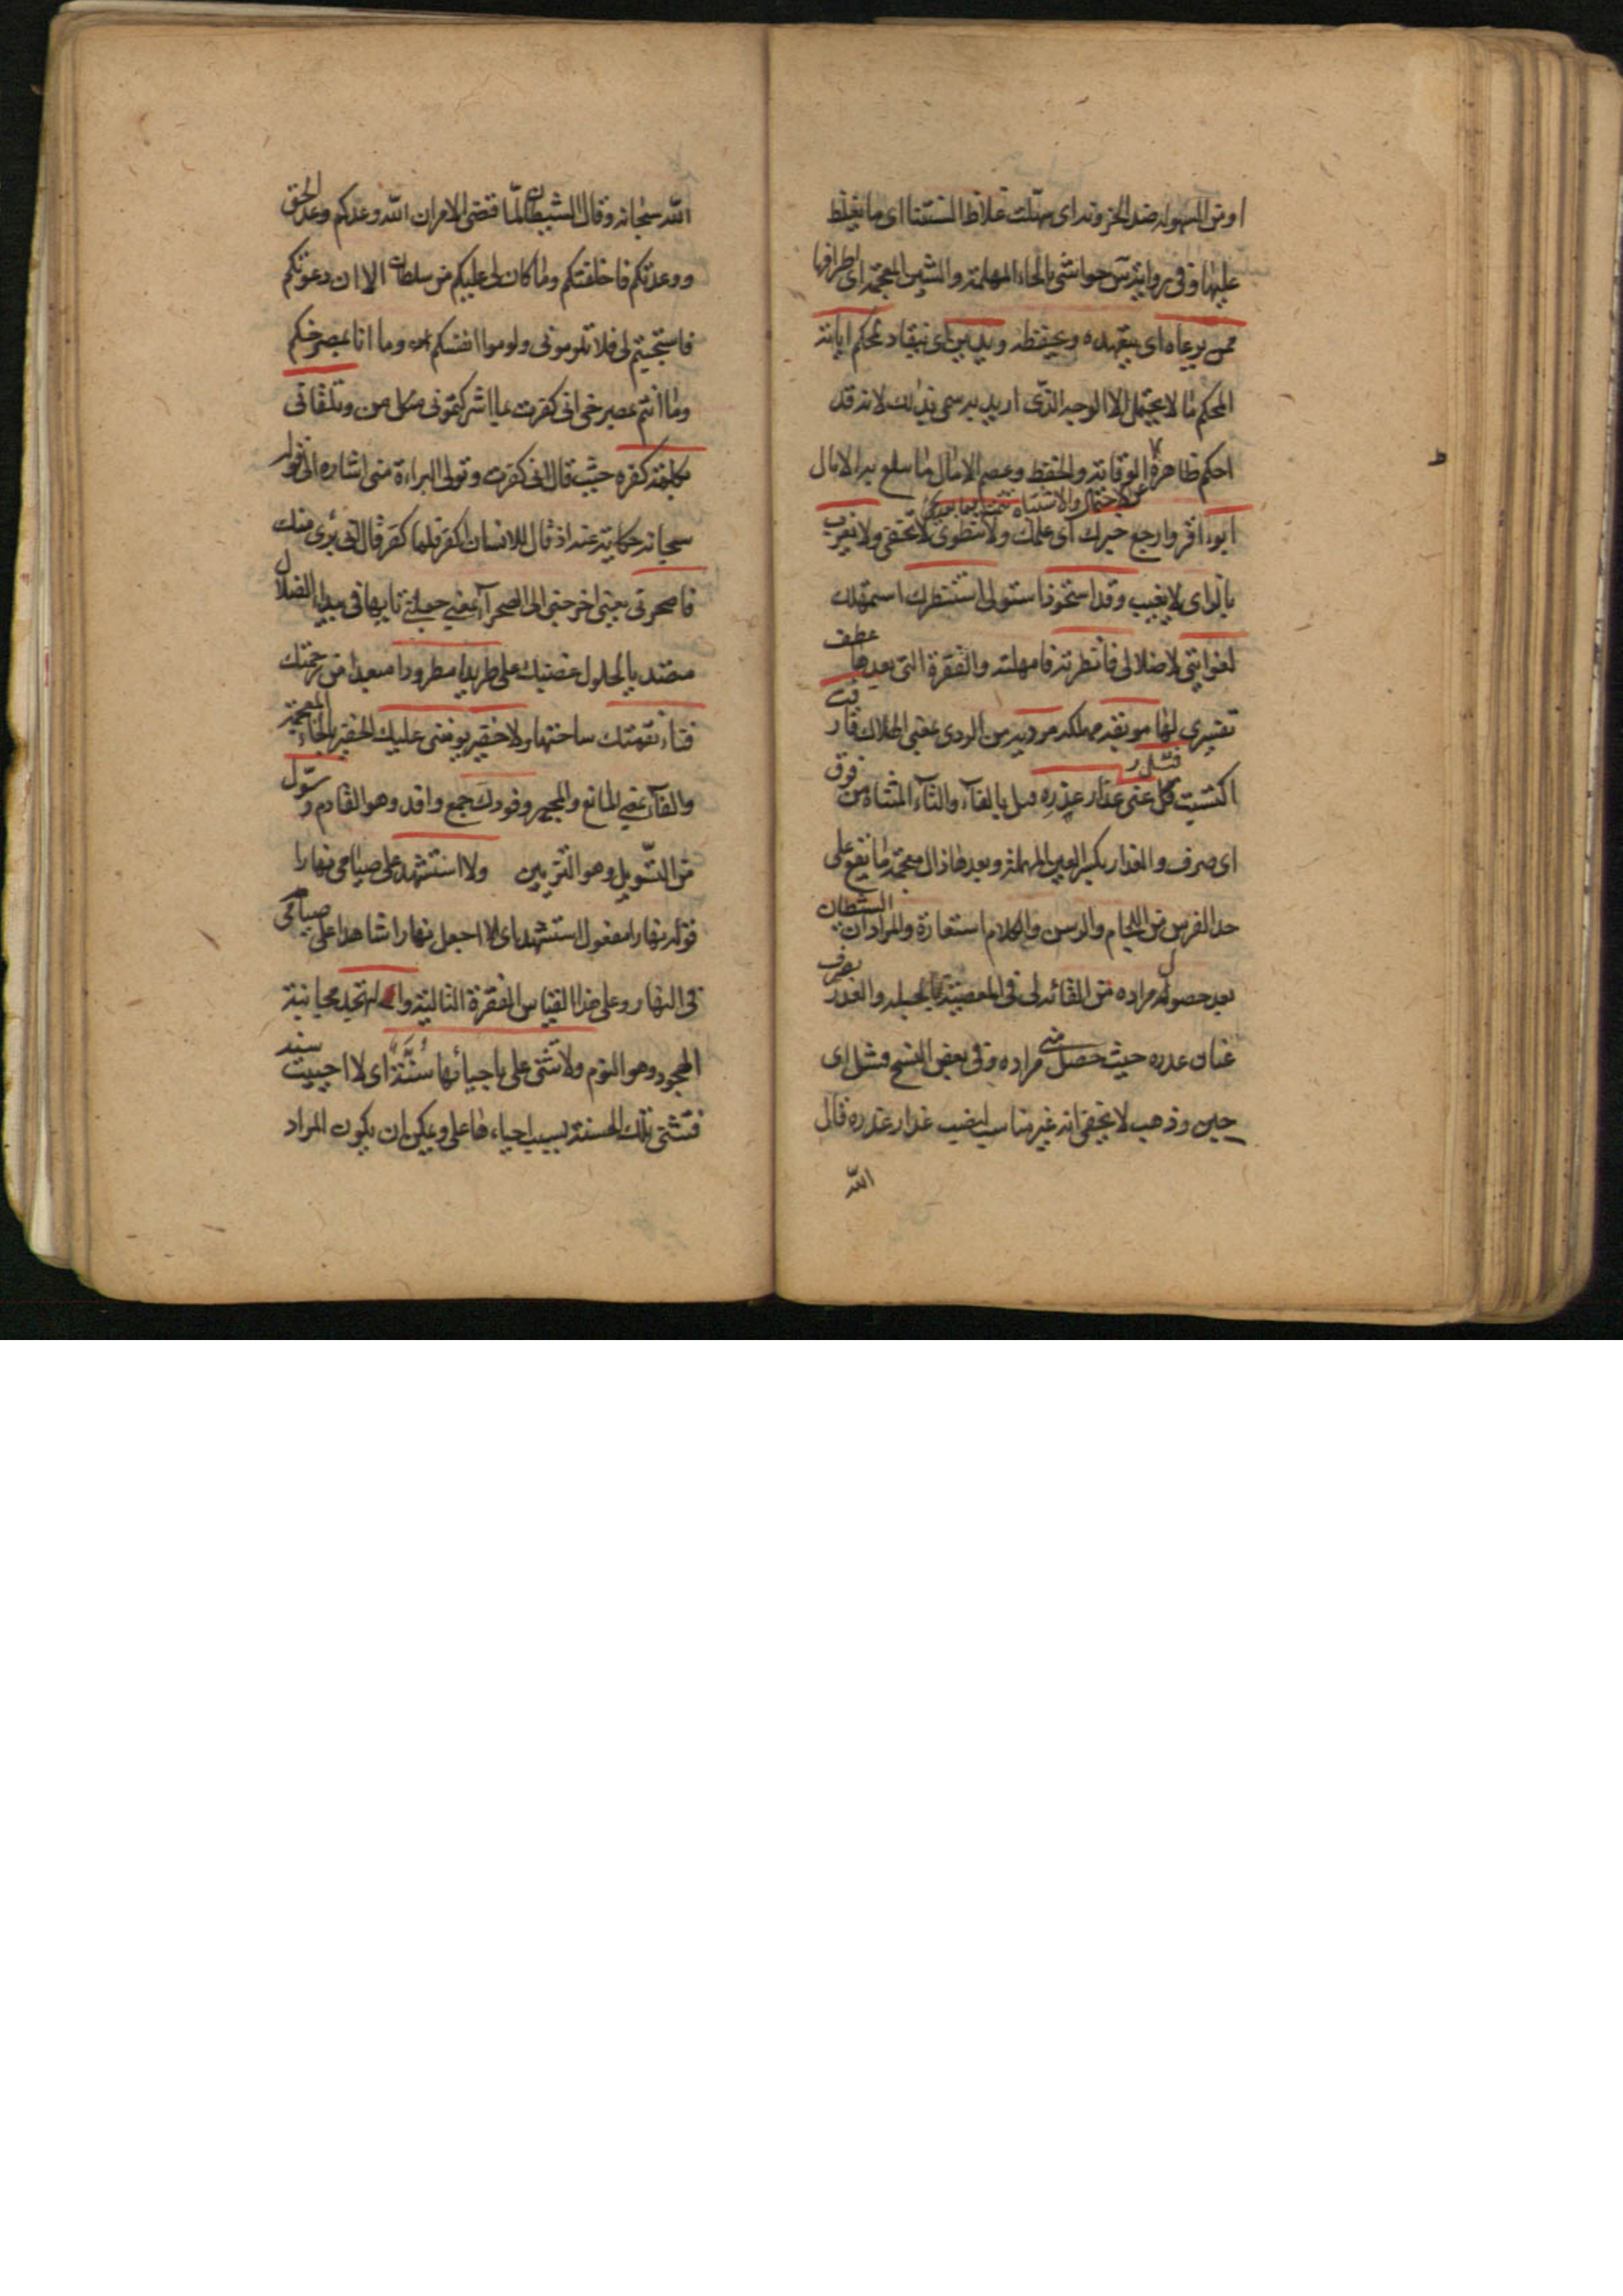 او من السهولة ضد الحزونة اى سهلت غلاظ السنتنا اى ما يغلظ
عليها وفى رواية س حواشى بالحاء المهملة والشين المعجمة اى اطرافها
ممن يرعاه اى يتعهده ويحفظه ويدين اى ينقاد لمحكم اياته
المحكم ما لا يحتمل الا الوجه الذى اريد به سمى بذلك لانه قد
احكم ظاهره الوقاية والحفظ وعصم الامال ما سلع به الامال
عن الاحتمال والاشتباه
ابوء اقر وارجع خبرك اى علمك ولا تنطوى لا تخفى ولا تغرب
بالراى لا يغيب وقد استحوذ استولى استنظرك استمهلك
لغوايتى لاضلالى فانظرته فامهلته والفقرة التى بعدها عطف
تفسيرى لها موبقة مهلكة مردية من الردى بمعنى الهلاك قارفت
اكتسبت فتل عنى عذار عذره فتل بالفاء والتاء المثناة من فوق
اى صرف والعذار بكسر العين المهملة وبعدها ذال معجمة ما يقع على
خد الفرس من اللجام والرسن والكلام استعارة والمراد ان الشيطان
بعد حصول مراده من القائه لى فى المعصية بالحيلة والغدر يصرف
عنان غدره حيث حصل منى مراده وفى بعض النسخ فشل اى
جبن وذهب لا يخفى انه غير مناسب لنصب عذار غدره قال
الله
الله سبحانه وقال الشيطان لما قضى الامر ان الله وعدكم وعد الحق
ووعدتكم فاخلفتكم وما كان لى عليكم من سلطان الا ان دعوتكم
فاستجبتم لى فلا تلومونى ولوموا انفسكم وما انا بمصرخكم
وما انتم بمصرخى انى كفرت بما اشركتمونى من قبل وتلقانى
بكلمة كفره حيث قال انى كفرت وتولى البراءة منى اشاره الى قوله
سبحانه حكاية عنه اذ قال للانسان اكفر فلما كفر قال انى برئ منك
فاصحرنى يعنى اخرجنى الى الصحراء يعنى جعلنى تايها فى بيداء الضلال
متصديا لحلول غضبك على طريدا مطرودا مبعدا من رحمتك
فناء نقمتك ساحتها ولا خفير يؤمننى عليك الخفير بالخاء المعجمة
والفاء بمعنى المانع والمجير وفودك جمع وافد وهو القادم وسول
من التسويل وهو التزيين ولا استشهد على صيامى نهارا
قوله نهارا مفعول استشهد اى لا اجعل نهارا شاهدا على صيامى
فى النهار وعلى هذا القياس الفقرة التالية والتهجد مجانبة
الهجود وهو النوم ولا تثنى على باحيائها سنة اى لا احييت سنة
فتثنى تلك الحسنة بسبب احياء ها على ويمكن ان يكون المراد